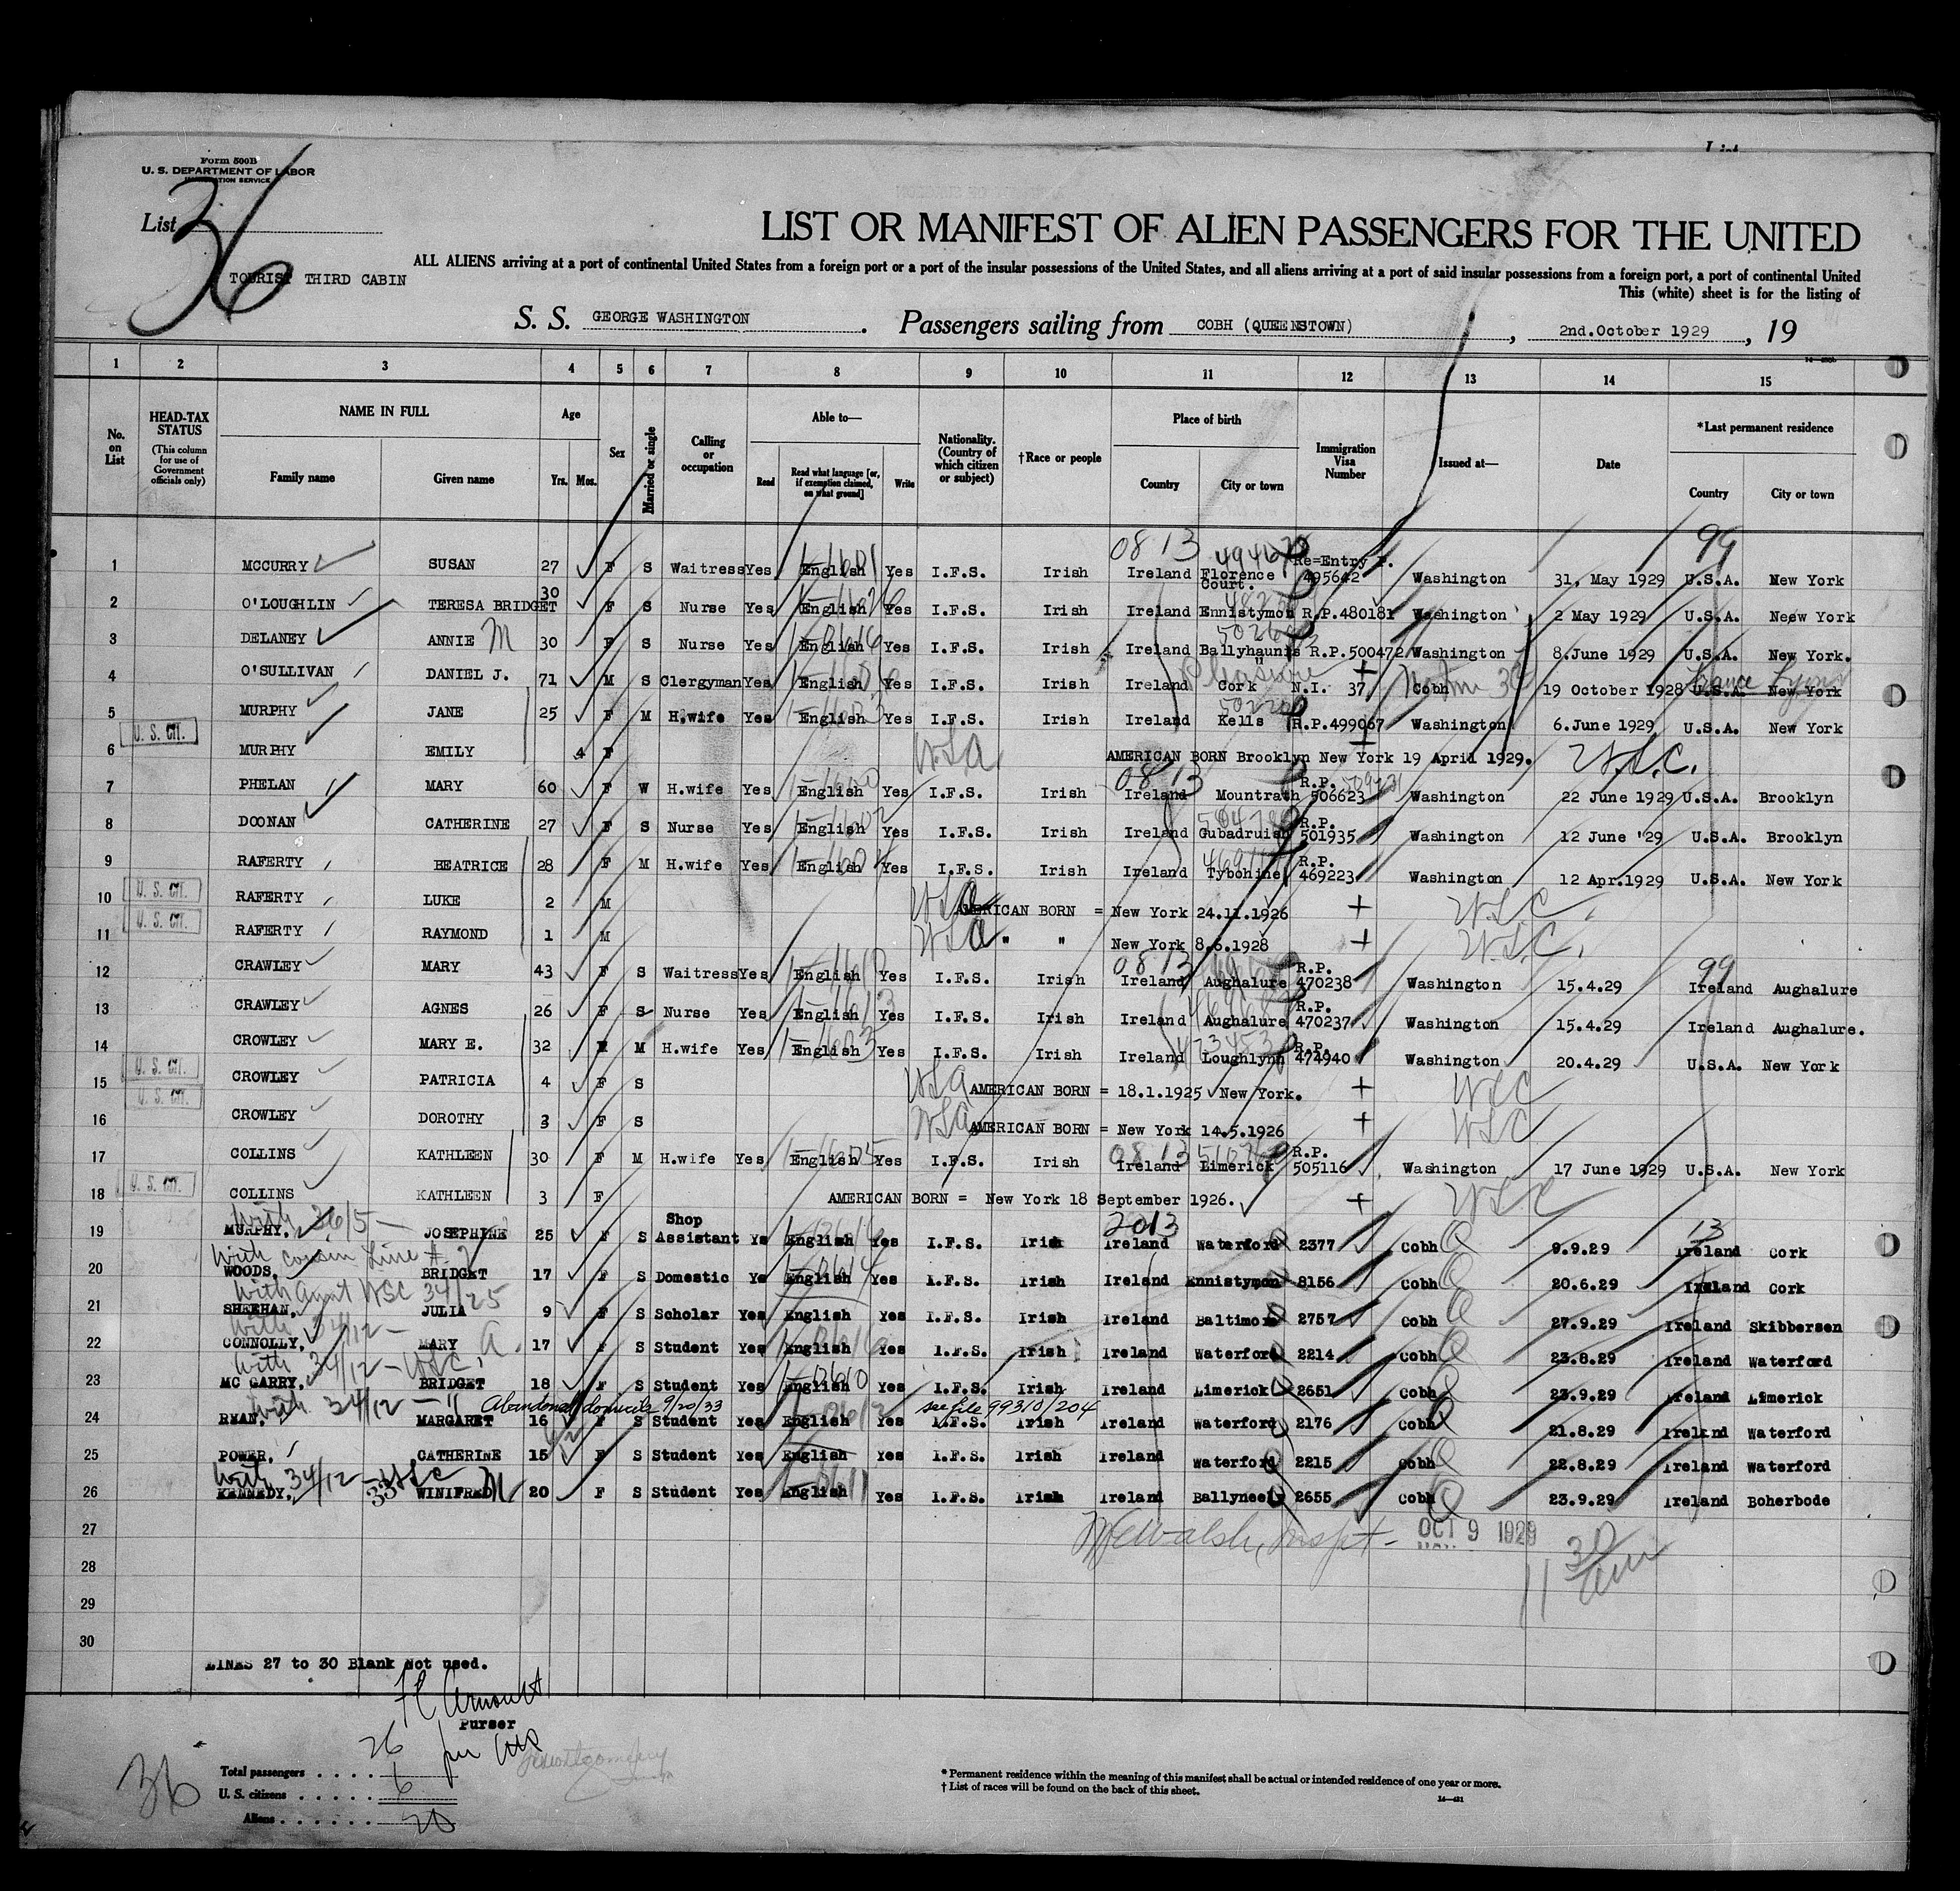 List
Form 500B
U. S. DEPARTMENT OF LABOR
IMMIGRATION SERVICE
List 36
LIST OR MANIFEST OF ALIEN PASSENGERS FOR THE UNITED
ALL ALIENS arriving at a port of continental United States from a foreign port or a port of the insular possessions of the United States, and all aliens arriving at a port of said insular possessions from a foreign port, a port of continental United
TOURIST THIRD CABIN
This (white) sheet is for the listing of
S. S. GEORGE WASHINGTON . Passengers sailing from COBH (QUEENSTOWN) , 2nd.October 1929 , 19
1 2 3 4 5 6 7 8 9 10 11 12 13 14 15
No. on List HEAD-TAX STATUS (This column for use of Government officials only) NAME IN FULL Family name Given name Age Yrs. Mos. Sex Married or single Calling or occupation Able to— Read Read what language [or, if exemption claimed, on what ground] Write Nationality. (Country of which citizen or subject) †Race or people Place of birth Country City or town Immigration Visa Number Issued at— Date *Last permanent residence Country City or town
0813 99
1 MCCURRY SUSAN 27 F S Waitress Yes English Yes I.F.S. Irish Ireland Florence Court. Re-Entry P. 495642 Washington 31, May 1929 U.S.A. New York
2 O'LOUGHLIN TERESA BRIDGET 30 F S Nurse Yes English Yes I.F.S. Irish Ireland Ennistymon R.P.480181 Washington 2 May 1929 U.S.A. Neew York
3 DELANEY ANNIE M 30 F S Nurse Yes English Yes I.F.S. Irish Ireland Ballyhaunis R.P.500472 Washington 8.June 1929 U.S.A. New York.
4 O'SULLIVAN DANIEL J. 71 M S Clergyman Yes English Yes I.F.S. Irish Ireland Cork N.I. 37 Cobh 19 October 1928 U.S.A. New York
5 MURPHY JANE 25 F M H.wife Yes English Yes I.F.S. Irish Ireland Kells R.P.499067 Washington 6.June 1929 U.S.A. New York
U. S. CIT.
6 MURPHY EMILY 4 F USA AMERICAN BORN Brooklyn New York 19 April 1929. U.S.C.
0813
7 PHELAN MARY 60 F W H.wife Yes English Yes I.F.S. Irish Ireland Mountrath R.P. 506623 Washington 22 June 1929 U.S.A. Brooklyn
8 DOONAN CATHERINE 27 F S Nurse Yes English Yes I.F.S. Irish Ireland Gubadruish R.P. 501935 Washington 12 June '29 U.S.A. Brooklyn
9 RAFERTY BEATRICE 28 F M H.wife Yes English Yes I.F.S. Irish Ireland Tybohine R.P. 469223 Washington 12 Apr.1929 U.S.A. New York
U. S. CIT.
10 RAFERTY LUKE 2 M USA AMERICAN BORN = New York 24.11.1926 + U.S.C.
U. S. CIT.
11 RAFERTY RAYMOND 1 M USA " " New York 8.6.1928 + U.S.C.
0813 99
12 CRAWLEY MARY 43 F S Waitress Yes English Yes I.F.S. Irish Ireland Aughalure R.P. 470238 Washington 15.4.29 Ireland Aughalure
13 CRAWLEY AGNES 26 F S Nurse Yes English Yes I.F.S. Irish Ireland Aughalure R.P. 470237 Washington 15.4.29 Ireland Aughalure.
14 CROWLEY MARY E. 32 M H.wife Yes English Yes I.F.S. Irish Ireland Loughlynn R.P. 474940 Washington 20.4.29 U.S.A. New York
U. S. CIT.
15 CROWLEY PATRICIA 4 F S USA AMERICAN BORN = 18.1.1925 New York. + USC
U. S. CIT.
16 CROWLEY DOROTHY 3 F S USA AMERICAN BORN = New York 14.5.1926 + USC
17 COLLINS KATHLEEN 30 F M H.wife Yes English Yes I.F.S. Irish 0813 Ireland Limerick R.P. 505116 Washington 17 June 1929 U.S.A. New York
U. S. CIT.
18 COLLINS KATHLEEN 3 F AMERICAN BORN = New York 18 September 1926. + USC
with 36/5 — 2013 13
19 MURPHY, JOSEPHINE 25 F S Shop Assistant Ye English Yes I.F.S. Irish Ireland Waterford 2377 Cobh 9.9.29 Ireland Cork
with cousin Line # 2
20 WOODS, BRIDGET 17 F S Domestic Ye English Yes I.F.S. Irish Ireland Ennistymon 8156 Cobh 20.6.29 Ireland Cork
with Aunt USC 34/25
21 SHEEHAN, JULIA 9 F S Scholar Yes English Yes I.F.S. Irish Ireland Baltimore 2757 Cobh 27.9.29 Ireland Skibbersen
with 34/12 —
22 CONNOLLY, MARY A. 17 F S Student Yes English Yes I.F.S. Irish Ireland Waterford 2214 Cobh 23.8.29 Ireland Waterford
with 34/12 — USC,
23 MC GARRY, BRIDGET 18 F S Student Yes English Yes I.F.S. Irish Ireland Limerick 2651 Cobh 23.9.29 Ireland Limerick
with 34/12 — " Abandoned domicile 9/20/33 see file 99310/204
24 RYAN, MARGARET 16 F S Student Yes English Yes I.F.S. Irish Ireland Waterford 2176 Cobh 21.8.29 Ireland Waterford
25 POWER, CATHERINE 15 F S Student Yes English Yes I.F.S. Irish Ireland Waterford 2215 Cobh 22.8.29 Ireland Waterford
with 34/12 — USC
26 KENNEDY, WINIFRED M 20 F S Student Yes English Yes I.F.S. Irish Ireland Ballyneety 2655 Cobh 23.9.29 Ireland Boherbode
27 Walsh, Inspt— OCT 9 1929
28 11 30 am
29
30
LINES 27 to 30 Blank Not used.
Purser
Total passengers .... 26
U. S. citizens ..... 6
Aliens ...... 20
36
* Permanent residence within the meaning of this manifest shall be actual or intended residence of one year or more.
† List of races will be found on the back of this sheet.